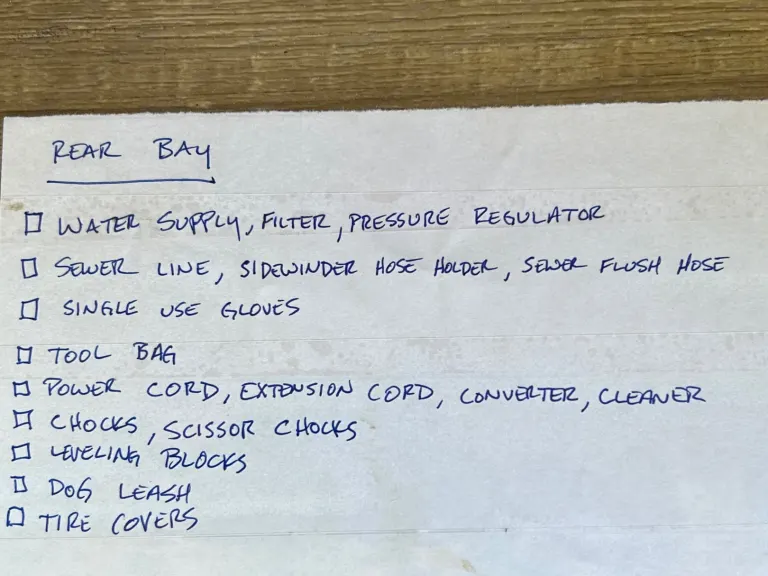 REAR BAY
☐ WATER SUPPLY, FILTER, PRESSURE REGULATOR
☐ SEWER LINE, SIDEWINDER HOSE HOLDER, SEWER FLUSH HOSE
☐ SINGLE USE GLOVES
☐ TOOL BAG
☐ POWER CORD, EXTENSION CORD, CONVERTER, CLEANER
☐ CHOCKS, SCISSOR CHOCKS
☐ LEVELING BLOCKS
☐ DOG LEASH
☐ TIRE COVERS